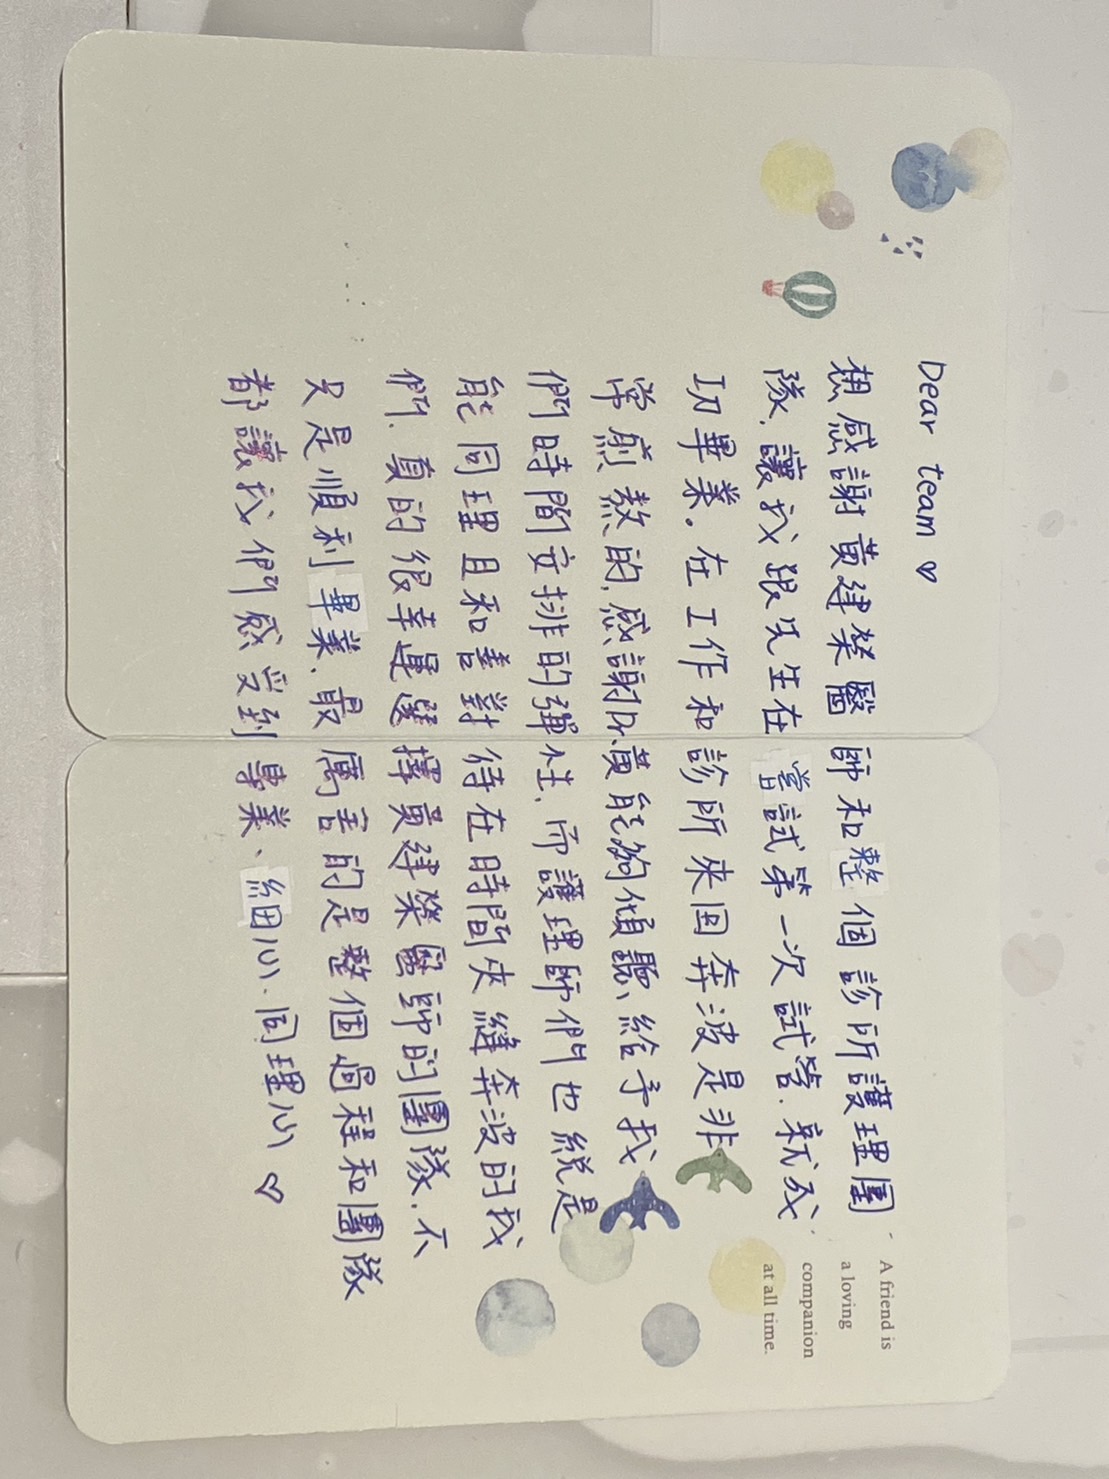 Dear team ♡
想感謝黃建榮醫師和整個診所護理團
隊,讓我跟先生在嘗試第一次試管,就成
功畢業。在工作和診所來回奔波是非
常煎熬的,感謝Dr.黃能夠傾聽、給予我
們時間安排的彈性,而護理師們也總是
能同理且和善對待在時間夾縫奔波的我
們,真的很幸運選擇黃建榮醫師的團隊,不
只是順利畢業,最厲害的是整個過程和團隊
都讓我們感受到專業、細心、同理心 ♡
A friend is
a loving
companion
at all time.